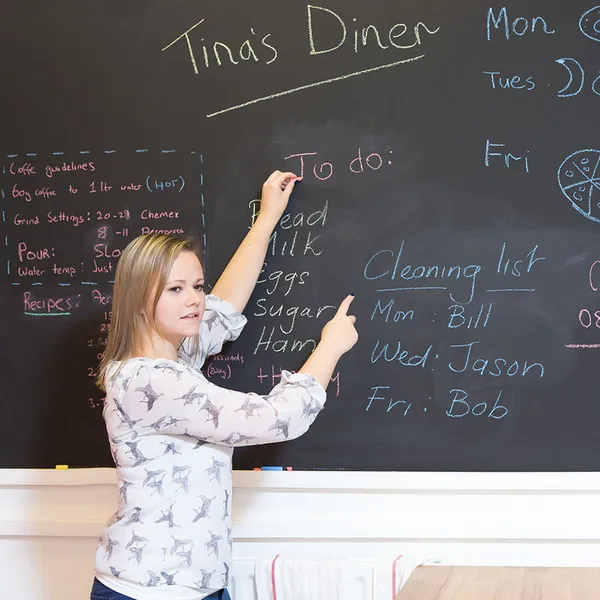 Tina's Diner
Mon
Tues.
Fri
Coffe guidelines
60g coffee to 1 ltr water (HOT)
Grind Settings: 20-21 Chemex
8-11
Pour:
Water temp: Just
Recipes:
To do:
Bread
Milk
Eggs
Sugar
Ham
Cleaning list
Mon : Bill
Wed: Jason
Fri: Bob